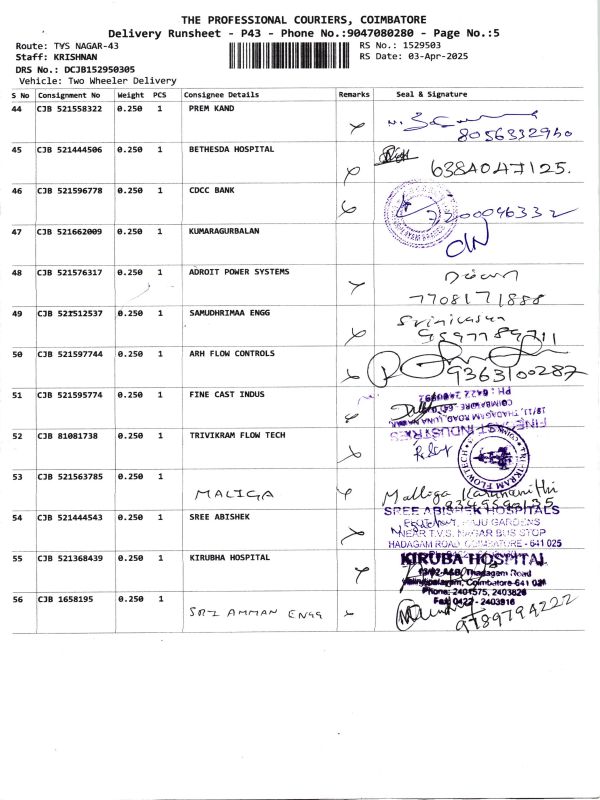 THE PROFESSIONAL COURIERS, COIMBATORE
Delivery Runsheet - P43 - Phone No.:9047080280 - Page No.:5
Route: TYS NAGAR-43 RS No.: 1529503
Staff: KRISHNAN RS Date: 03-Apr-2025
DRS No.: DCJB152950305
Vehicle: Two Wheeler Delivery
S No Consignment No Weight PCS Consignee Details Remarks Seal & Signature
44 CJB 521558322 0.250 1 PREM KAND
8056332960
45 CJB 521444506 0.250 1 BETHESDA HOSPITAL
6384047125.
46 CJB 521596778 0.250 1 CDCC BANK
7200046332
47 CJB 521662009 0.250 1 KUMARAGURBALAN
48 CJB 521576317 0.250 1 ADROIT POWER SYSTEMS
7708171888
49 CJB 521512537 0.250 1 SAMUDHRIMAA ENGG
Srinivasan
9597789711
50 CJB 521597744 0.250 1 ARH FLOW CONTROLS
9363100287
51 CJB 521595774 0.250 1 FINE CAST INDUS
FINE CAST INDUSTRIES
18/11, THADAGAM ROAD, LUNA NAGAR,
COIMBATORE - 641 025
52 CJB 81081738 0.250 1 TRIVIKRAM FLOW TECH
53 CJB 521563785 0.250 1 MALIGA
Malliga Karunanithi
54 CJB 521444543 0.250 1 SREE ABISHEK
SREE ABISHEK HOSPITALS
RAJU GARDENS
NEAR T.V.S. NAGAR BUS STOP
HADAGAM ROAD, COIMBATORE - 641 025
55 CJB 521368439 0.250 1 KIRUBHA HOSPITAL
KIRUBA HOSPITAL
Thadagam Road
Coimbatore-641 025
Phone: 2401575, 2403826
Fax: 0422 - 2403916
56 CJB 1658195 0.250 1 SRI AMMAN ENGG
9789794222